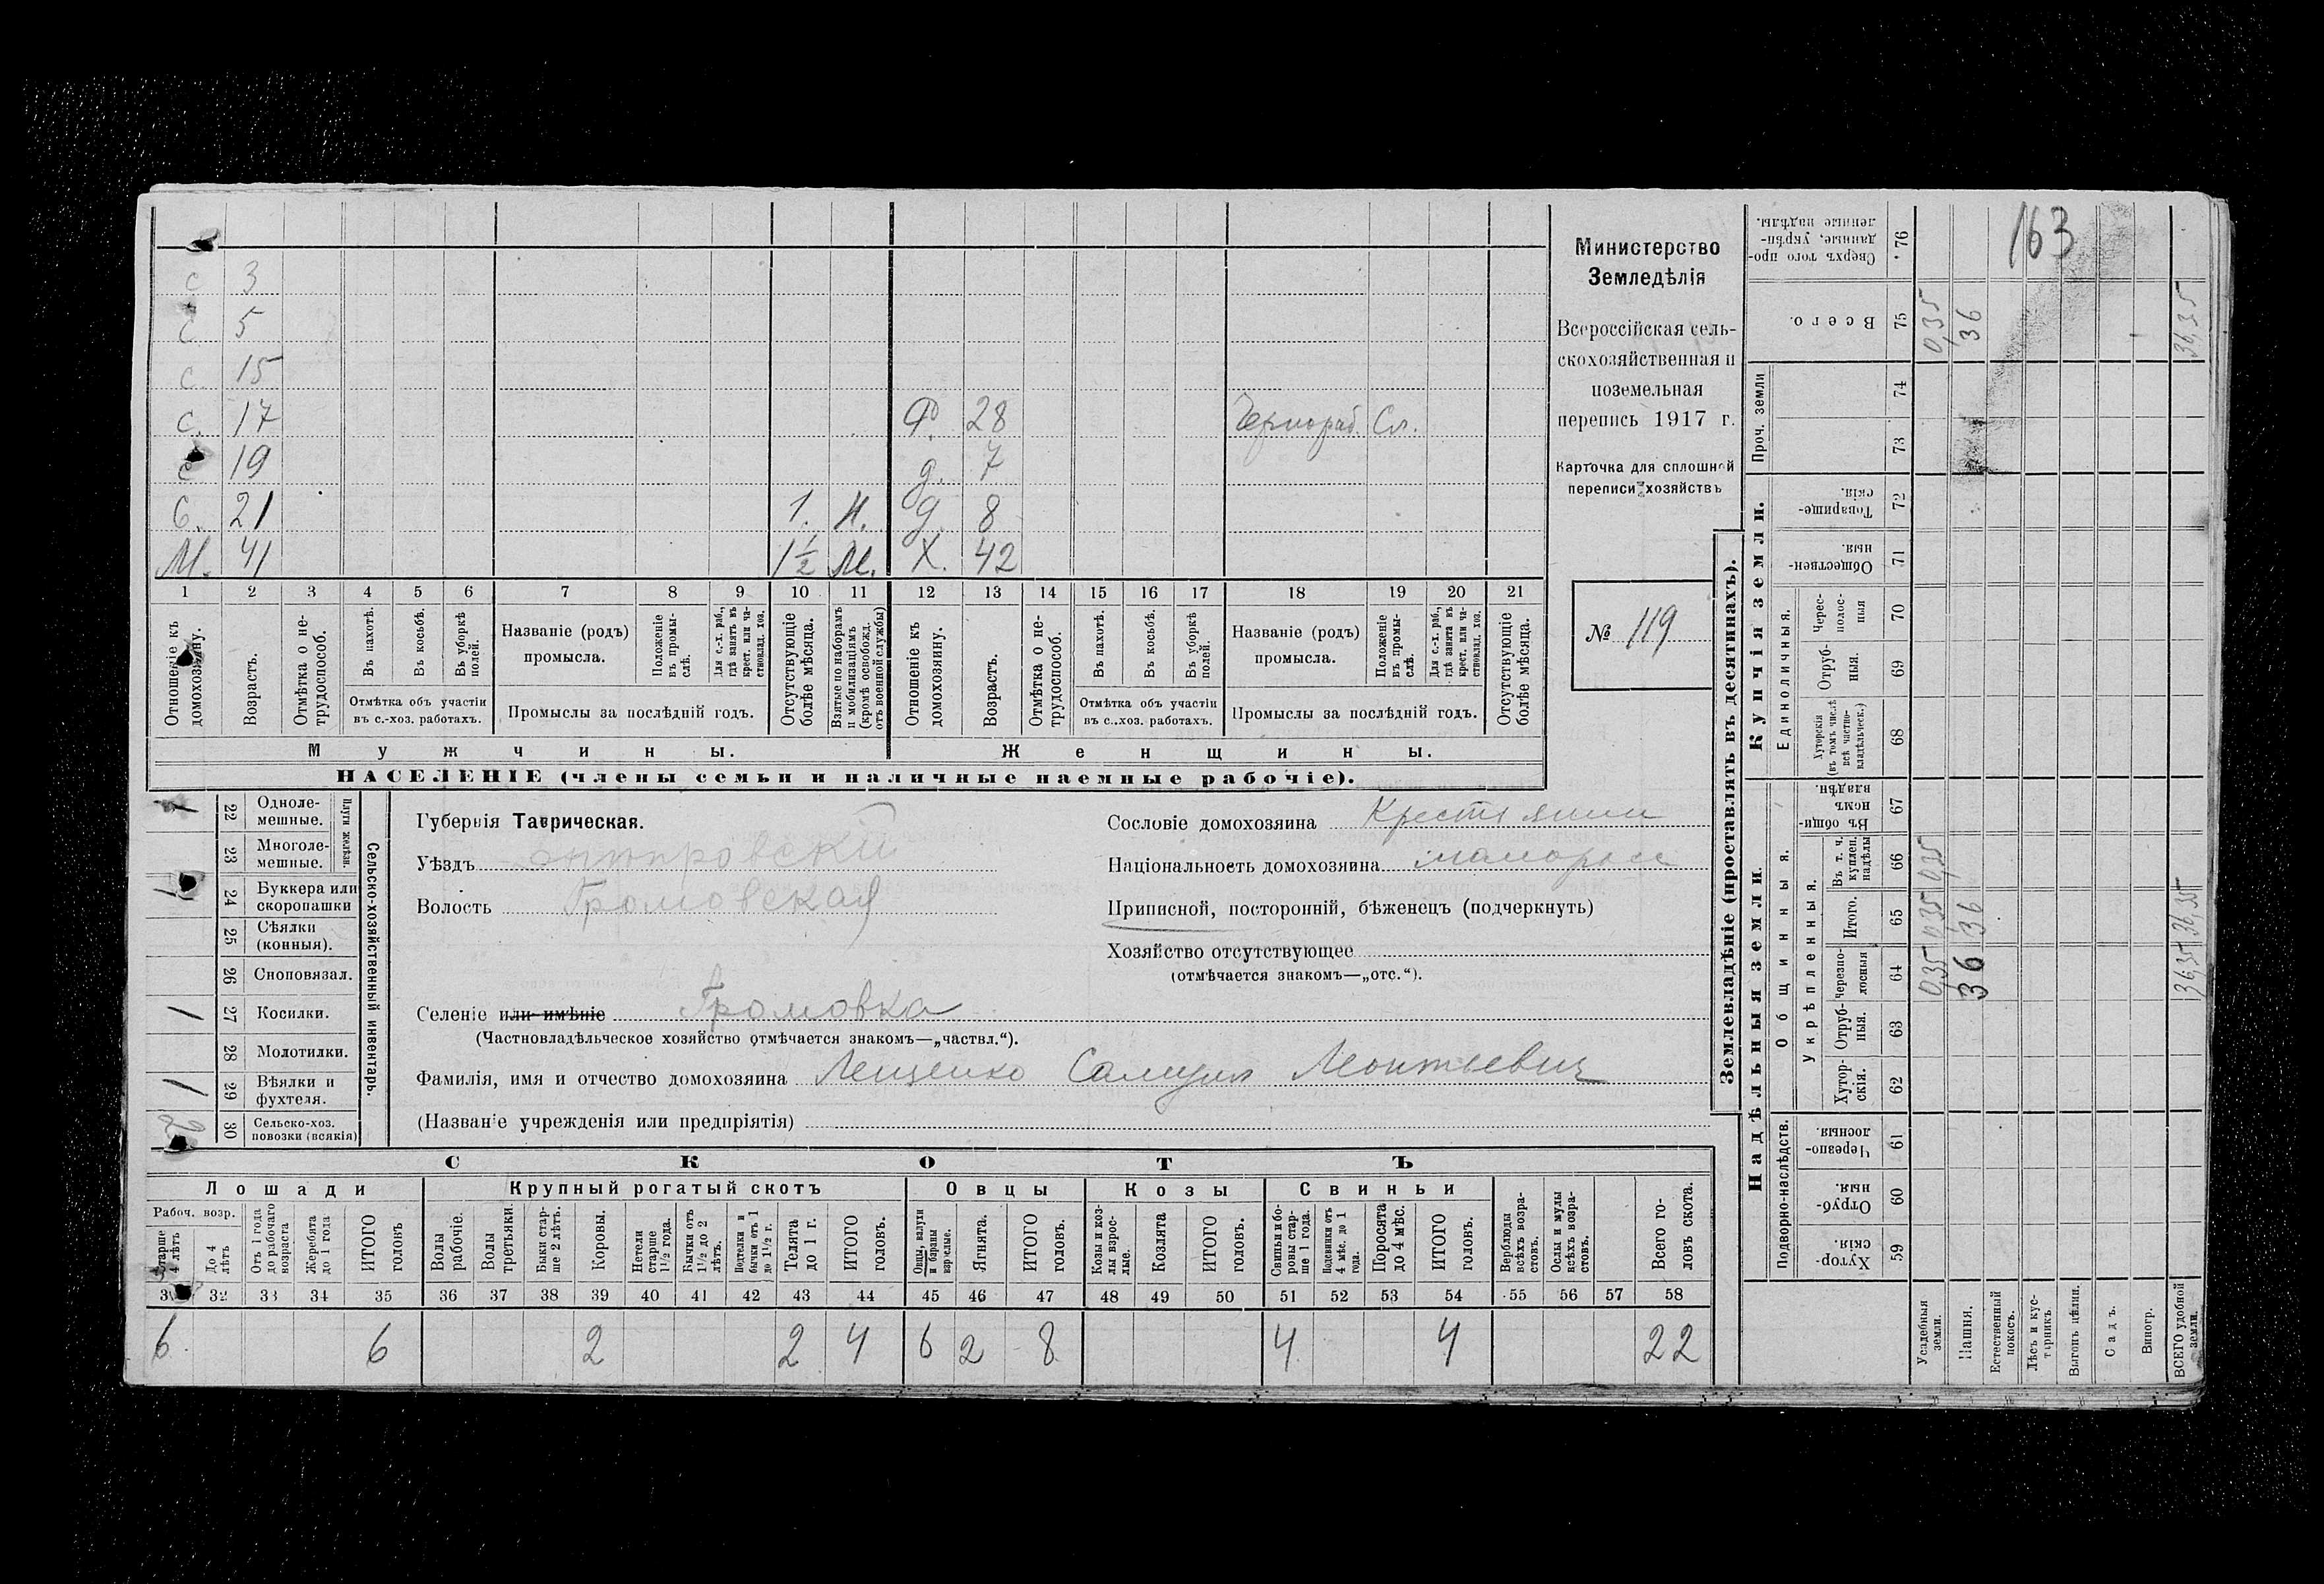 163
с 3
с 5
с. 15
с. 17 Ф. 28 Чернораб. Сл.
с 19 д. 7
С. 21 1. М. д 8
М. 41 1½ М. Х. 42
1 2 3 4 5 6 7 8 9 10 11 12 13 14 15 16 17 18 19 20 21
Отношеніе къ домохозяину.
Возрастъ.
Отмѣтка о нетрудоспособ.
Въ пахотѣ.
Въ косьбѣ.
Въ уборкѣ полей.
Отмѣтка объ участіи
въ с.-хоз. работахъ.
Названіе (родъ)
промысла.
Положеніе въ промыслѣ.
Для с.-х. раб., гдѣ занятъ въ крест. или частновлад. хоз.
Промыслы за послѣдній годъ.
Отсутствующіе болѣе мѣсяца.
Взятые по наборамъ и мобилизаціямъ (кромѣ освобожд. отъ военной службы)
Отношеніе къ домохозяину.
Возрастъ.
Отмѣтка о нетрудоспособ.
Въ пахотѣ.
Въ косьбѣ.
Въ уборкѣ полей.
Отмѣтка объ участіи
въ с.-хоз. работахъ.
Названіе (родъ)
промысла.
Положеніе въ промыслѣ.
Для с.-х. раб., гдѣ занята въ крест. или частновлад. хоз.
Промыслы за послѣдній годъ.
Отсутствующіе болѣе мѣсяца.
Мужчины. Женщины.
НАСЕЛЕНІЕ (члены семьи и наличные наемные рабочіе).
Министерство
Земледѣлія
Всероссійская сель-
скохозяйственная и
поземельная
перепись 1917 г.
Карточка для сплошной
переписи хозяйствъ
№ 119
Сельско-хозяйственный инвентарь.
Плуги желѣзн.
1 22 Однолемешные.
23 Многолемешные.
1 24 Буккера или скоропашки
25 Сѣялки (конныя).
26 Сноповязал.
1 27 Косилки.
28 Молотилки.
1 29 Вѣялки и фухтеля.
2 30 Сельско-хоз. повозки (всякія)
Губернія Таврическая.
Уѣздъ Днѣпровскій
Волость Громовская
Сословіе домохозяина Крестьянин
Національность домохозяина малоросс
Приписной, посторонній, бѣженецъ (подчеркнуть)
Хозяйство отсутствующее
(отмѣчается знакомъ—„отс.“).
Селеніе или имѣніе Громовка
(Частновладѣльческое хозяйство отмѣчается знакомъ—„частвл.“).
Фамилія, имя и отчество домохозяина Лещенко Самуил Леонтьевич
(Названіе учрежденія или предпріятія)
СКОТЪ
Лошади Крупный рогатый скотъ Овцы Козы Свиньи
Рабоч. возр.
Старше 4 лѣтъ
До 4 лѣтъ
Отъ 1 года до рабочаго возраста
Жеребята до 1 года
ИТОГО головъ
Волы рабочіе.
Волы третьяки.
Быки старше 2 лѣтъ.
Коровы.
Нетели старше 1½ года.
Бычки отъ 1½ до 2 лѣтъ.
Подтелки и бычки отъ 1 до 1½ г.
Телята до 1 г.
ИТОГО головъ.
Овцы, валухи и бараны взрослые.
Ягнята.
ИТОГО головъ.
Козы и козлы взрослые.
Козлята
ИТОГО головъ.
Свиньи и боровы старше 1 года.
Подсвинки отъ 4 мѣс. до 1 года.
Поросята до 4 мѣс.
ИТОГО головъ.
Верблюды всѣхъ возрастовъ.
Ослы и мулы всѣхъ возрастовъ.
Всего головъ скота.
31 32 33 34 35 36 37 38 39 40 41 42 43 44 45 46 47 48 49 50 51 52 53 54 55 56 57 58
6 6 2 2 4 6 2 8 4 4 22
Землевладѣніе (проставлять въ десятинахъ).
Надѣльныя земли. Купчія земли. Проч. земли
Подворно-наслѣдств. Общинныя. Укрѣпленныя. Единоличныя.
Хуторскія. 59
Отрубныя. 60
Черезполосныя 61
Хуторскія. 62
Отрубныя. 63
Черезполосныя 64
Итого. 65
Въ т. ч. куплен. надѣлы 66
Въ общинномъ владѣн. 67
Хуторскія (въ томъ числѣ всѣ частновладѣльческ.) 68
Отрубныя. 69
Череполосныя 70
Общественныя. 71
Товарищескія. 72
73
74
Всего. 75
Сверхъ того проданные, укрѣпленные надѣлы. 76
Усадебныя земли. 0,35 0,35 0,35 0,35
Пашня. 36 36 36
Естественный покосъ.
Лѣсъ и кустарникъ
Выгонъ цѣлин.
Садъ.
Виногр.
ВСЕГО удобной земли. 36,35 36,35 36,35